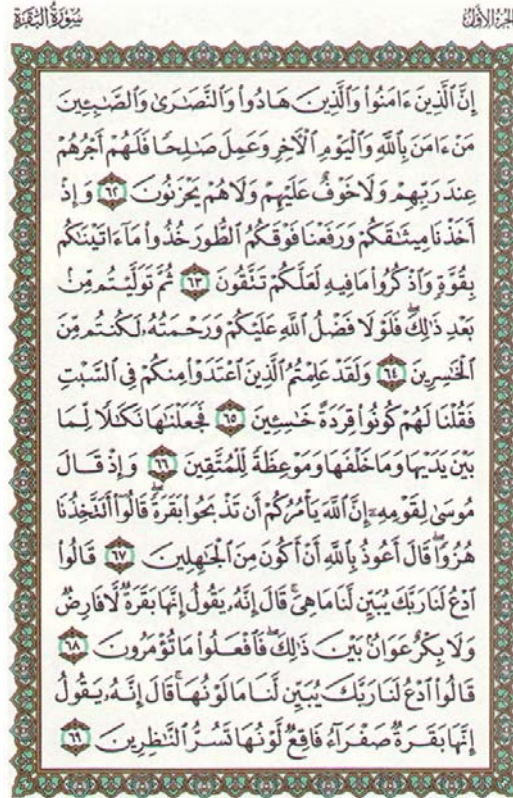 الجزء الأول
سورة البقرة
إِنَّ ٱلَّذِينَ ءَامَنُوا۟ وَٱلَّذِينَ هَادُوا۟ وَٱلنَّصَٰرَىٰ وَٱلصَّٰبِـِٔينَ
مَنْ ءَامَنَ بِٱللَّهِ وَٱلْيَوْمِ ٱلْءَاخِرِ وَعَمِلَ صَٰلِحًا فَلَهُمْ أَجْرُهُمْ
عِندَ رَبِّهِمْ وَلَا خَوْفٌ عَلَيْهِمْ وَلَا هُمْ يَحْزَنُونَ ٦٢ وَإِذْ
أَخَذْنَا مِيثَٰقَكُمْ وَرَفَعْنَا فَوْقَكُمُ ٱلطُّورَ خُذُوا۟ مَآ ءَاتَيْنَٰكُم
بِقُوَّةٍ وَٱذْكُرُوا۟ مَا فِيهِ لَعَلَّكُمْ تَتَّقُونَ ٦٣ ثُمَّ تَوَلَّيْتُم مِّنۢ
بَعْدِ ذَٰلِكَ ۖ فَلَوْلَا فَضْلُ ٱللَّهِ عَلَيْكُمْ وَرَحْمَتُهُۥ لَكُنتُم مِّنَ
ٱلْخَٰسِرِينَ ٦٤ وَلَقَدْ عَلِمْتُمُ ٱلَّذِينَ ٱعْتَدَوْا۟ مِنكُمْ فِى ٱلسَّبْتِ
فَقُلْنَا لَهُمْ كُونُوا۟ قِرَدَةً خَٰسِـِٔينَ ٦٥ فَجَعَلْنَٰهَا نَكَٰلًا لِّمَا
بَيْنَ يَدَيْهَا وَمَا خَلْفَهَا وَمَوْعِظَةً لِّلْمُتَّقِينَ ٦٦ وَإِذْ قَالَ
مُوسَىٰ لِقَوْمِهِۦٓ إِنَّ ٱللَّهَ يَأْمُرُكُمْ أَن تَذْبَحُوا۟ بَقَرَةً ۖ قَالُوٓا۟ أَتَتَّخِذُنَا
هُزُوًا ۖ قَالَ أَعُوذُ بِٱللَّهِ أَنْ أَكُونَ مِنَ ٱلْجَٰهِلِينَ ٦٧ قَالُوا۟
ٱدْعُ لَنَا رَبَّكَ يُبَيِّن لَّنَا مَا هِىَ ۚ قَالَ إِنَّهُۥ يَقُولُ إِنَّهَا بَقَرَةٌ لَّا فَارِضٌ
وَلَا بِكْرٌ عَوَانٌۢ بَيْنَ ذَٰلِكَ ۖ فَٱفْعَلُوا۟ مَا تُؤْمَرُونَ ٦٨
قَالُوا۟ ٱدْعُ لَنَا رَبَّكَ يُبَيِّن لَّنَا مَا لَوْنُهَا ۚ قَالَ إِنَّهُۥ يَقُولُ
إِنَّهَا بَقَرَةٌ صَفْرَآءُ فَاقِعٌ لَّوْنُهَا تَسُرُّ ٱلنَّٰظِرِينَ ٦٩